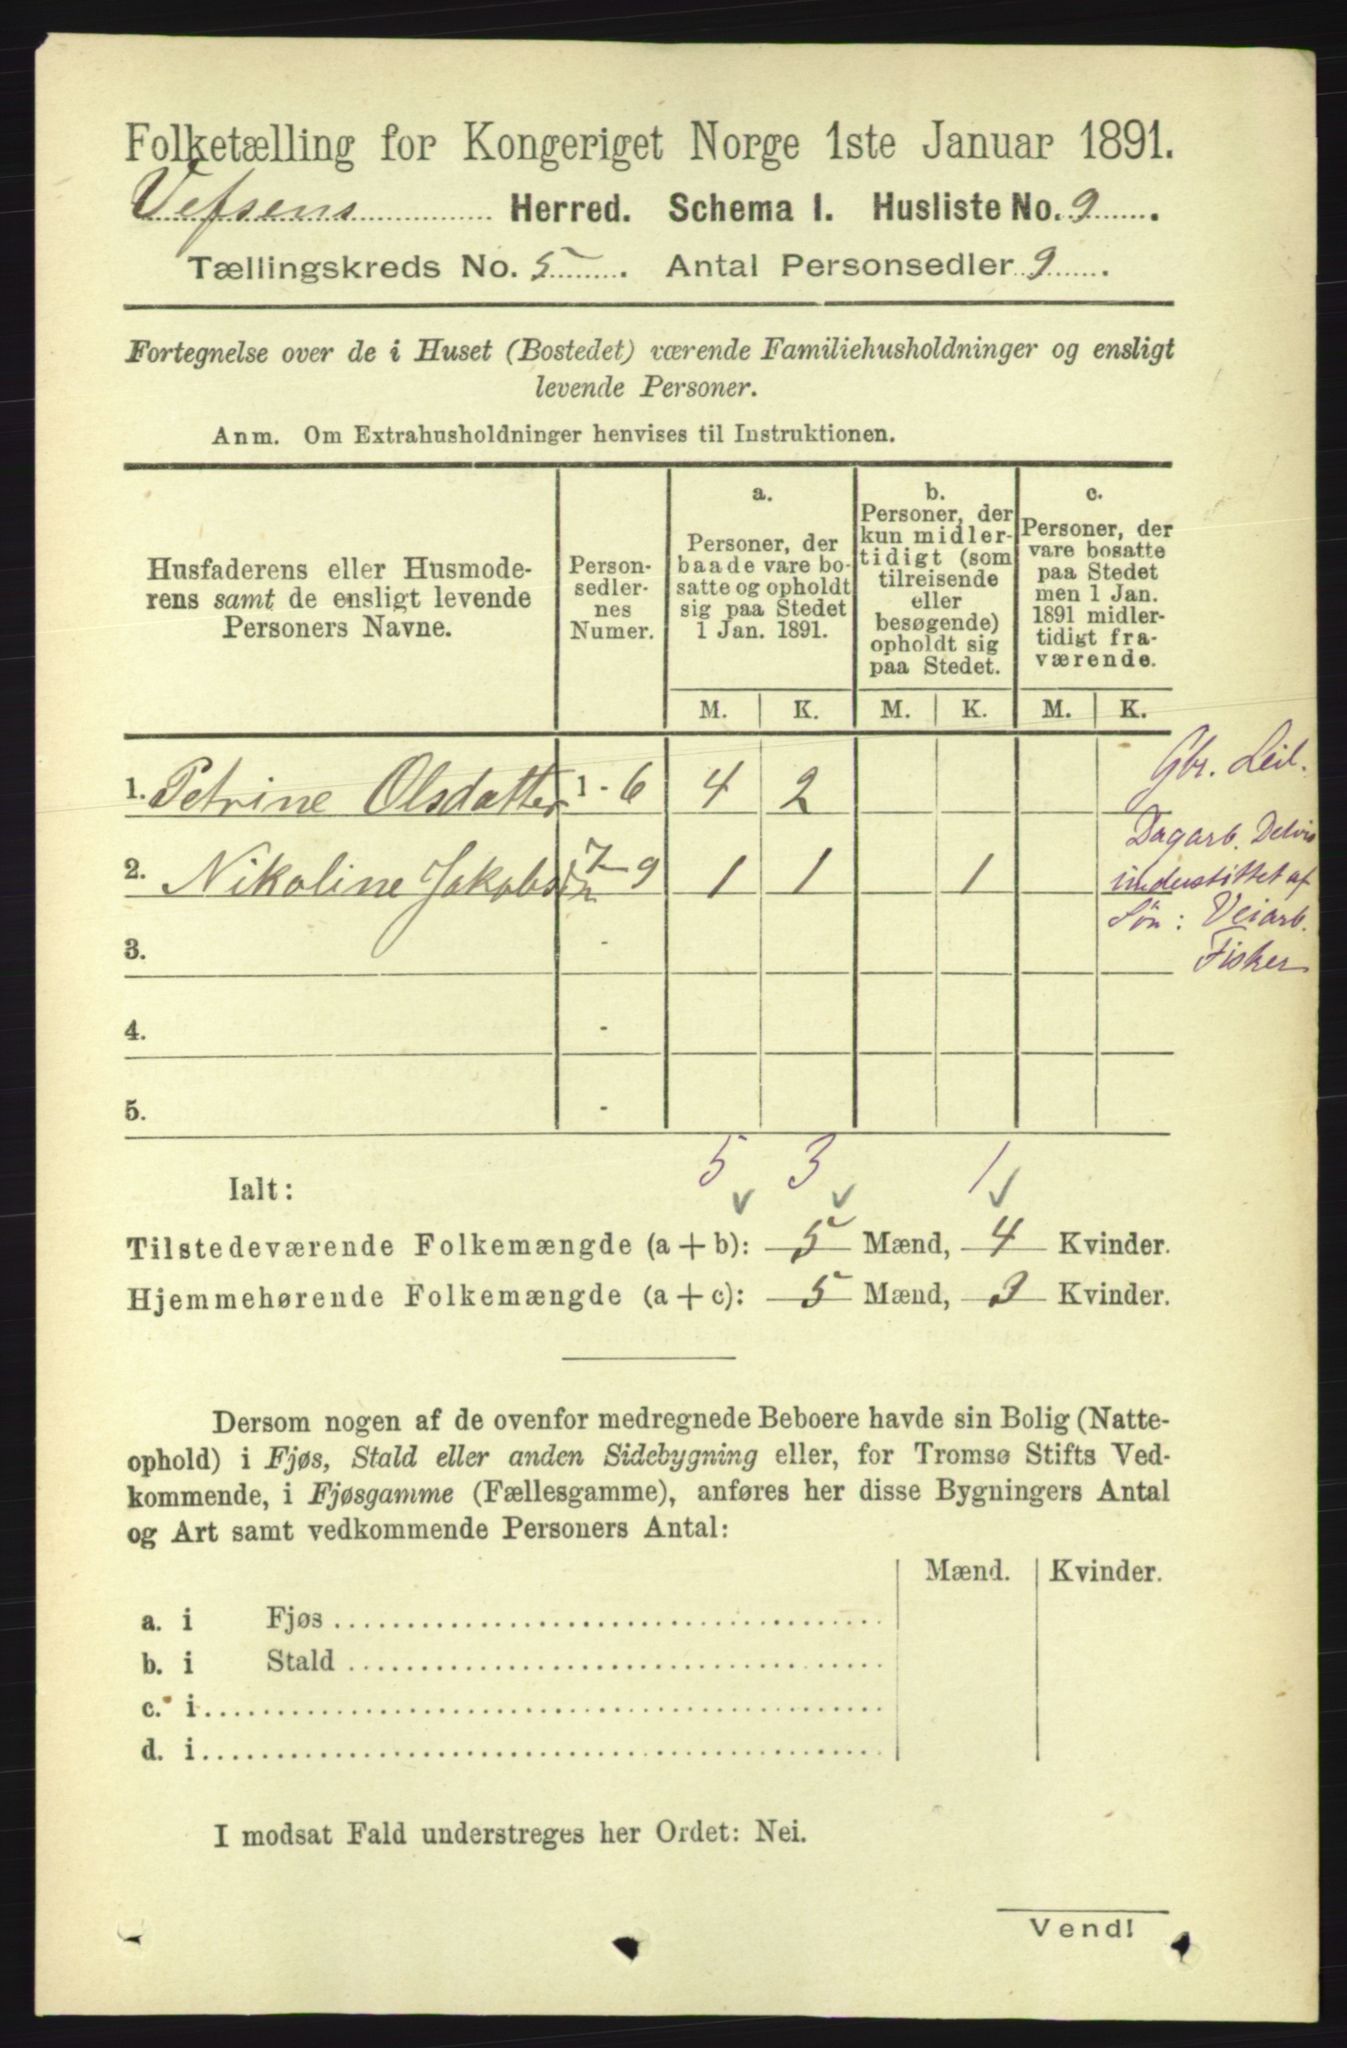 Folketælling for Kongeriget Norge 1ste Januar 1891.
Vefsens Herred. Schema I. Husliste No. 9.
Tællingskreds No. 5. Antal Personsedler 9.
Fortegnelse over de i Huset (Bostedet) værende Familiehusholdninger og ensligt
levende Personer.
Anm. Om Extrahusholdninger henvises til Instruktionen.
Husfaderens eller Husmode-
rens samt de ensligt levende
Personers Navne.
Person-
sedler-
nes
Numer.
a.
Personer, der
baade vare bo-
satte og opholdt
sig paa Stedet
1 Jan. 1891.
b.
Personer, der
kun midler-
tidigt (som
tilreisende
eller
besøgende)
opholdt sig
paa Stedet.
c.
Personer, der
vare bosatte
paa Stedet
men 1 Jan.
1891 midler-
tidigt fra-
værende.
M. K. M. K. M. K.
1. Petrine Olsdatter 1 - 6 4 2 Gbr. Leil.
2. Nikoline Jakobsdn 7 - 9 1 1 1 Dagarb. Delvis
understöttet af
Sön: Veiarb.
Fisker
3. -
4. -
5. -
Ialt: 5 3 1
Tilstedeværende Folkemængde (a + b): 5 Mænd, 4 Kvinder.
Hjemmehørende Folkemængde (a + c): 5 Mænd, 3 Kvinder.
Dersom nogen af de ovenfor medregnede Beboere havde sin Bolig (Natte-
ophold) i Fjøs, Stald eller anden Sidebygning eller, for Tromsø Stifts Ved-
kommende, i Fjøsgamme (Fællesgamme), anføres her disse Bygningers Antal
og Art samt vedkommende Personers Antal:
Mænd. Kvinder.
a. i Fjøs
b. i Stald
c. i
d. i
I modsat Fald understreges her Ordet: Nei.
Vend!